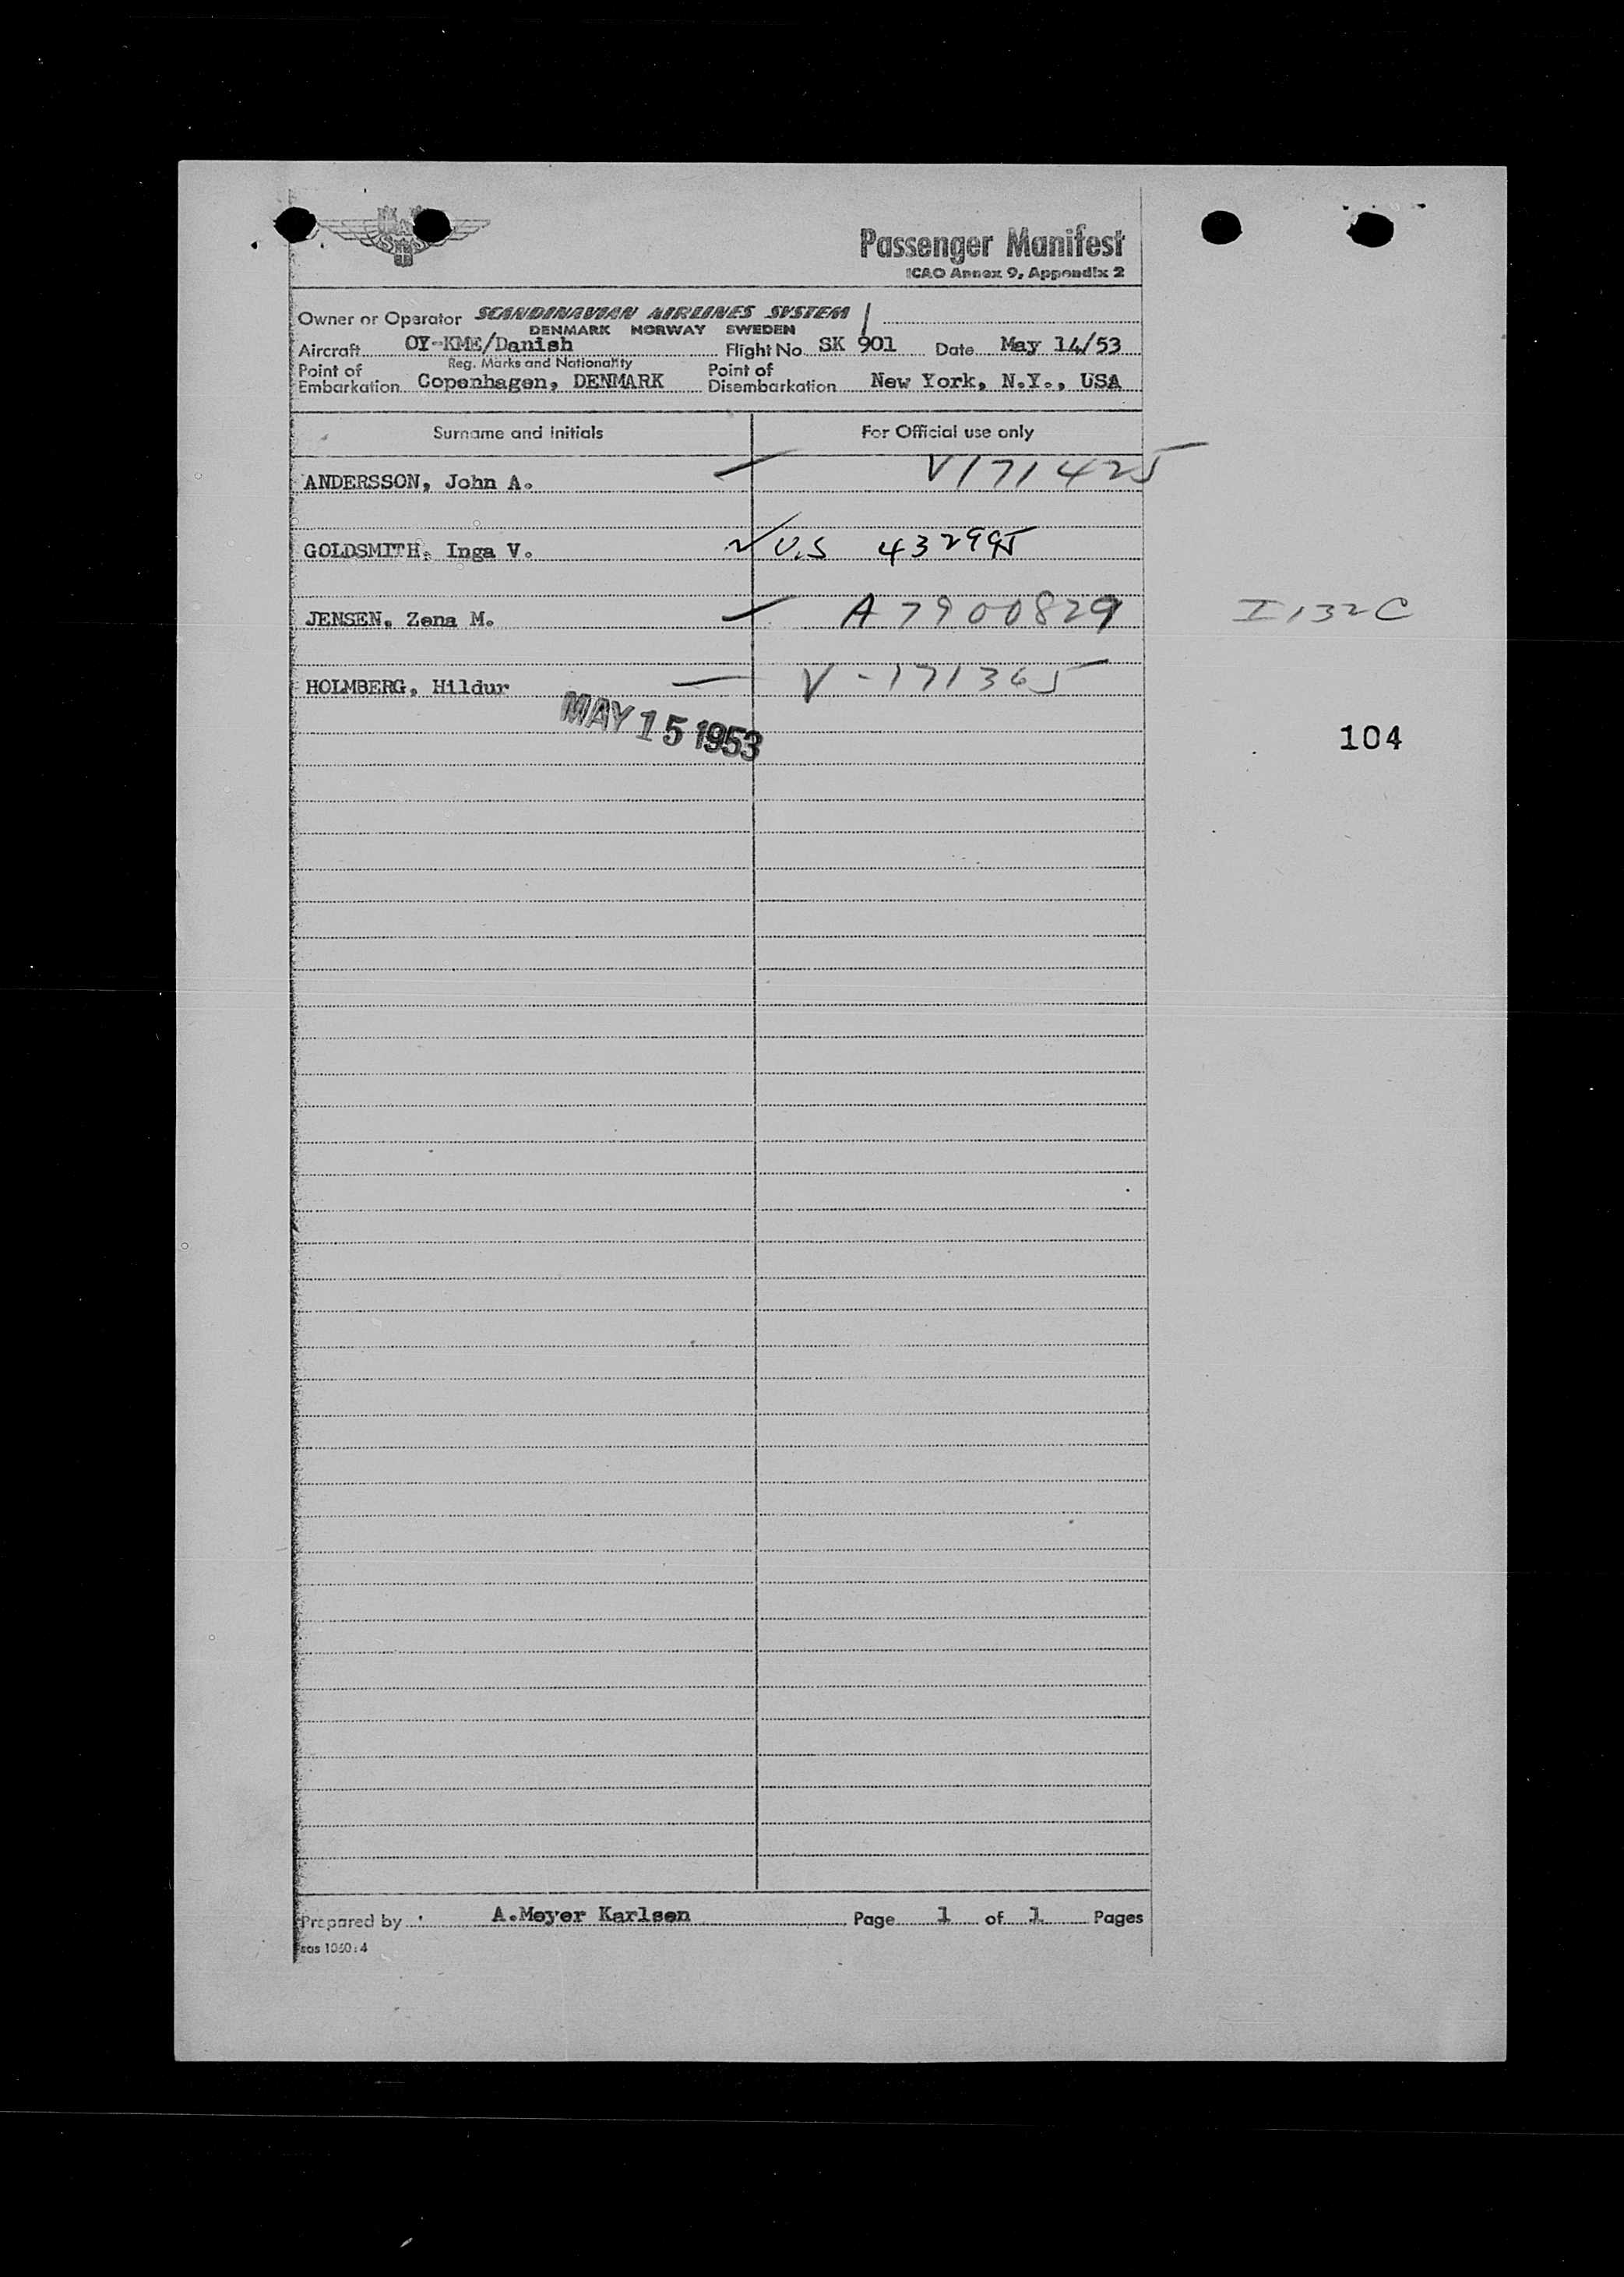 SAS
Passenger Manifest
ICAO Annex 9, Appendix 2
Owner or Operator SCANDINAVIAN AIRLINES SYSTEM
DENMARK NORWAY SWEDEN
Aircraft OY-KME/Danish Flight No. SK 901 Date May 14/53
Reg. Marks and Nationality
Point of Embarkation Copenhagen, DENMARK Point of Disembarkation New York, N.Y., USA
Surname and initials For Official use only
ANDERSSON, John A. V171425
GOLDSMITH, Inga V. U.S 432995
JENSEN, Zena M. A7900829 I132C
HOLMBERG, Hildur V-171365
MAY 15 1953
104
Prepared by A.Meyer Karlsen Page 1 of 1 Pages
sas 1060:4